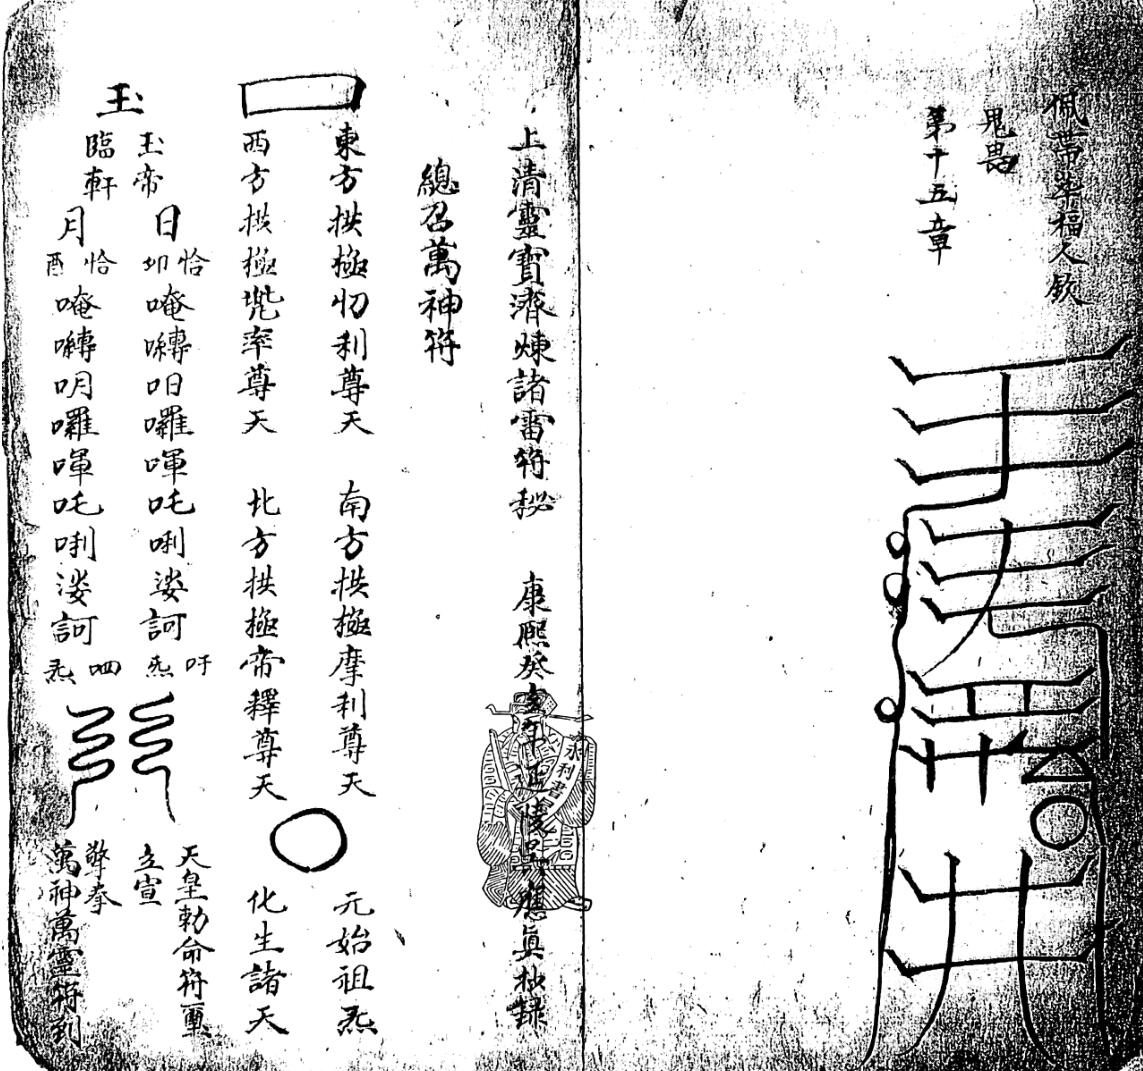 佩帶柒福人欽
鬼畏
第十五章
上清靈寶濟煉諸雷符秘
康熙癸年延陵應真抄錄
永利書
總召萬神符
東方拱極忉利尊天
南方拱極摩利尊天
元始祖炁
西方拱極兜率尊天
北方拱極帝釋尊天
化生諸天
玉
玉帝
臨軒
日
恰
唵囀吅囉喗吒唎娑訶
吁炁
天皇勅命符
立宣
月
恰
唵囀哊囉喗吒唎娑訶
呬炁
擎拳
萬神萬靈符到